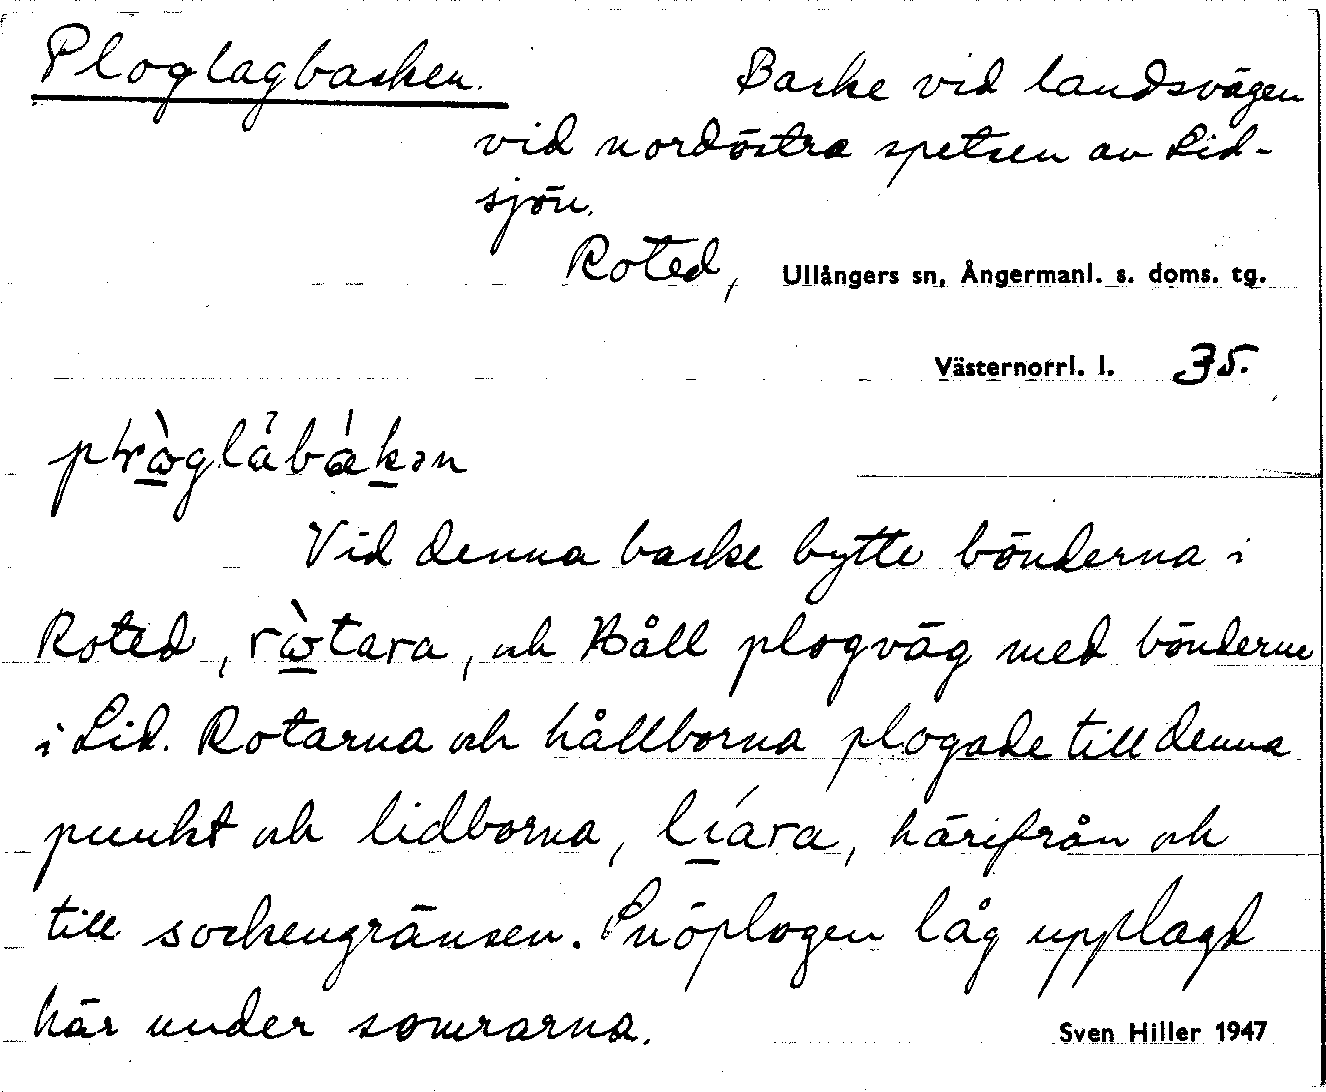 Ploglagbacken. Backe vid landsvägen
vid nordöstra spetsen av Lid-
sjön.
Roted, Ullångers sn, Ångermanl. s. doms. tg.
Västernorrl. l. 35.
Vid denna backe bytte bönderna i
Roted, ròtara, och Håll plogväg med bönderna
i Lid. Rotarna och hållborna plogade till denna
punkt och lidborna, líara, härifrån och
till sockengränsen. Snöplogen låg upplagd
här under somrarna. Sven Hiller 1947